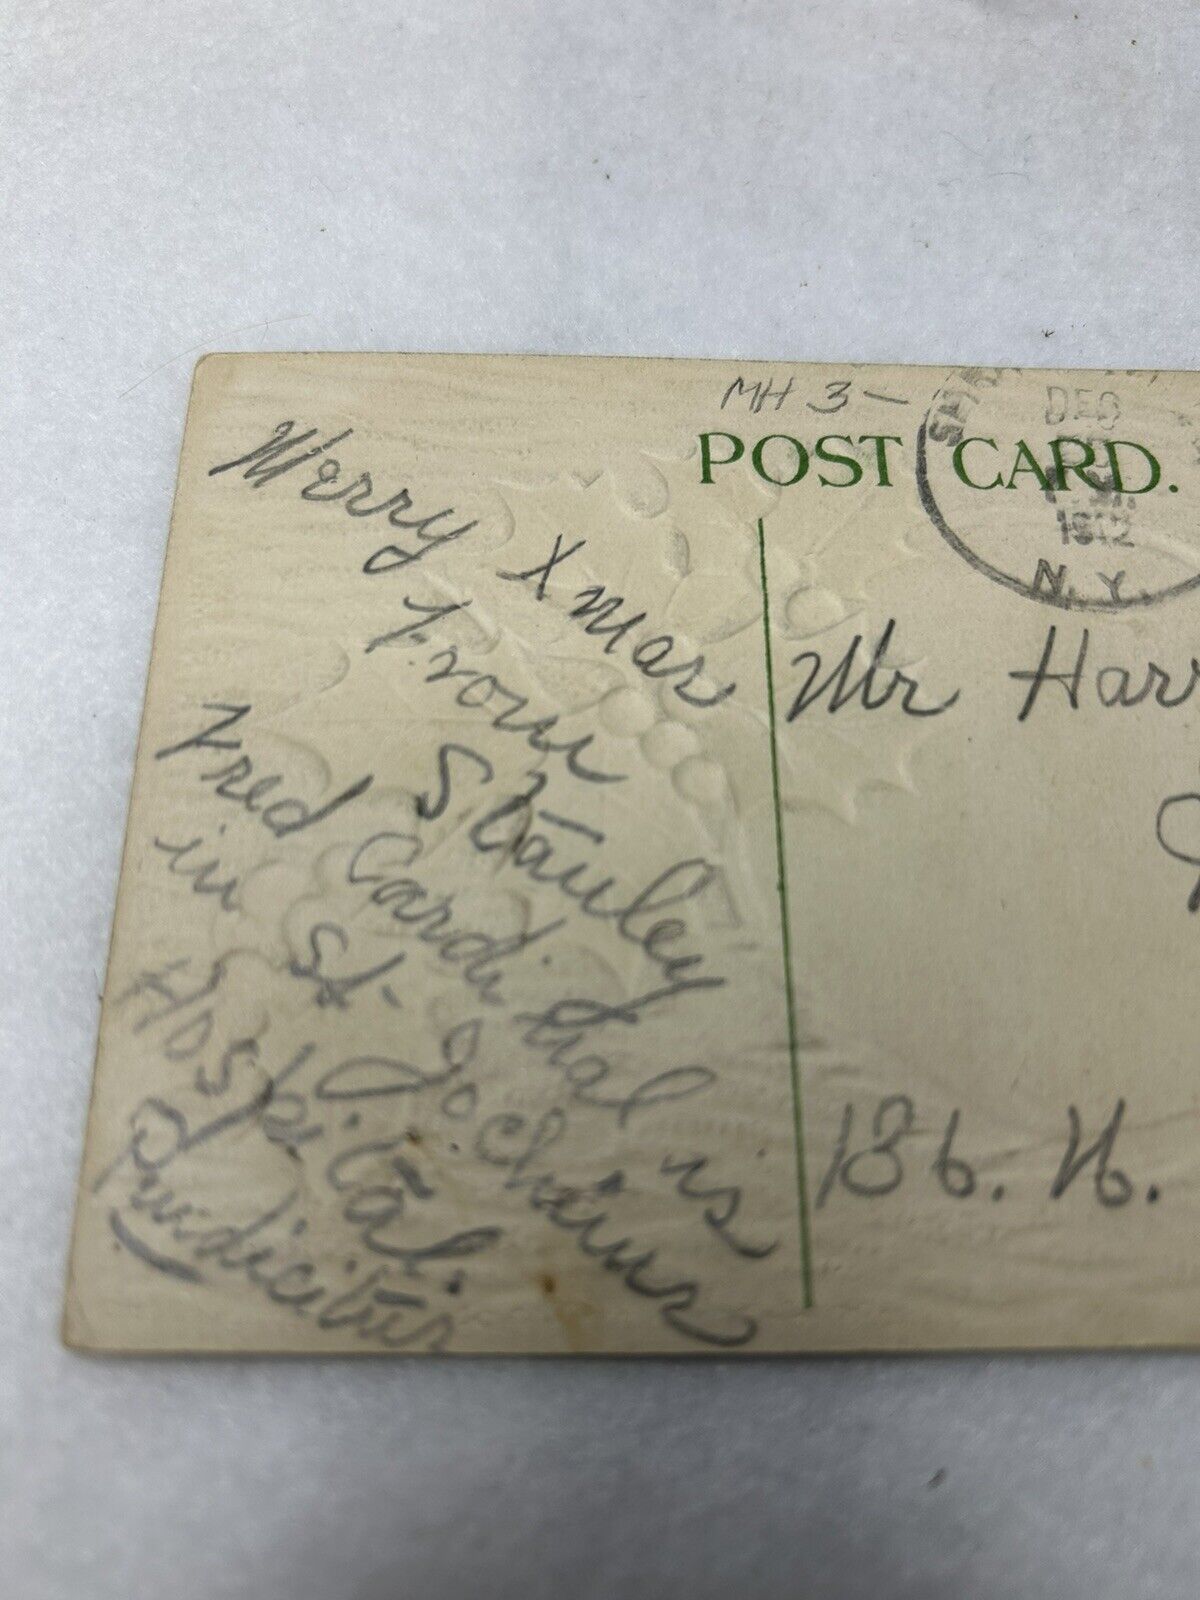 MH 3-
POST CARD.
DEC
1912
N.Y.
Merry Xmas
From
Stanley
Fred Cardi nal is
in St. Jochims
Hospital.
Mr Harr
136. N.